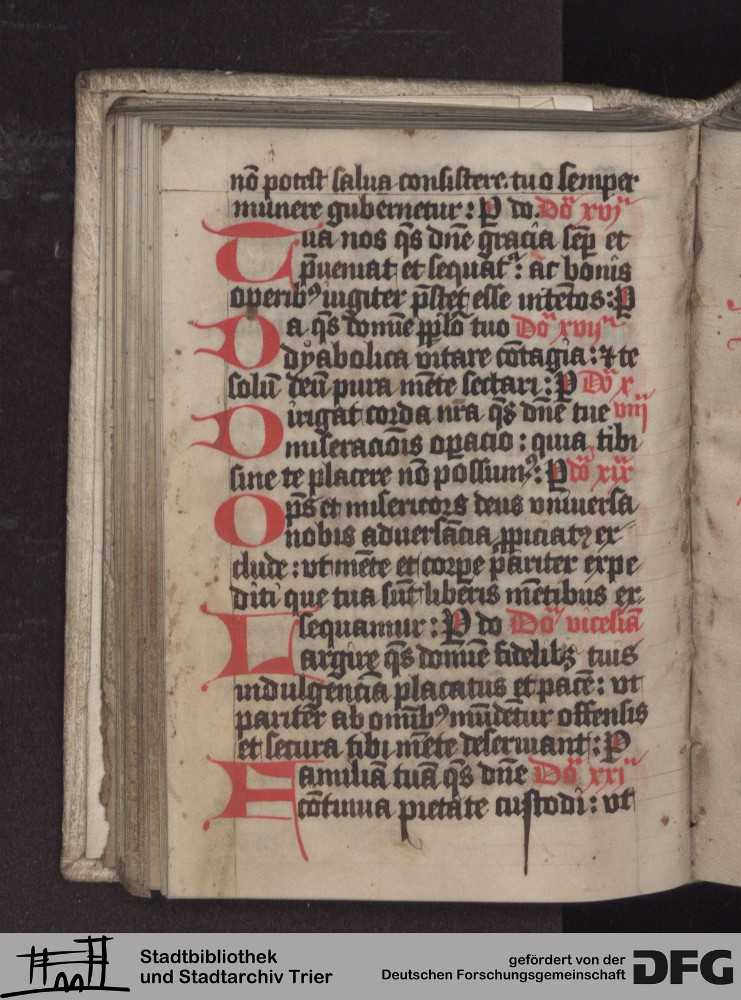 nō potest salua consistere: tuo semper
munere gubernetur: P do. Dō xvj
Tua nos qs dn̄e gracia sēp et
p̄ueniat et sequat᷑: ac bonis
operibꝰ iugiter p̄stet esse intētos: P
Da qs domīe pplō tuo Dō xvij
dyabolica vitare cōtagia: ⁊ te
solū deū pura mēte sectari: P Dō x
Dirigat corda nr̄a qs dn̄e tue viij
miseracōis oꝑacio: quia tibi
sine te placere nō possumꝰ: P dō xix
Op̄s et misericors deus vniuersa
nobis aduersācia ꝓpiciatꝰ ex
clude: vt mēte et corpe pariter expe
diti que tua sūt liberis mētibus ex
sequamur: P do Dō vicesiā
Largire qs domīe fidelibꝫ tuis
indulgenciā placatus et pacē: vt
pariter ab omībꝰ mūdētur offensis
et secura tibi mēte deseruiant: P
Familiā tuā qs dn̄e Dō xxi
cōtinua pietate custodi: vt
Stadtbibliothek
und Stadtarchiv Trier
gefördert von der
Deutschen Forschungsgemeinschaft
DFG